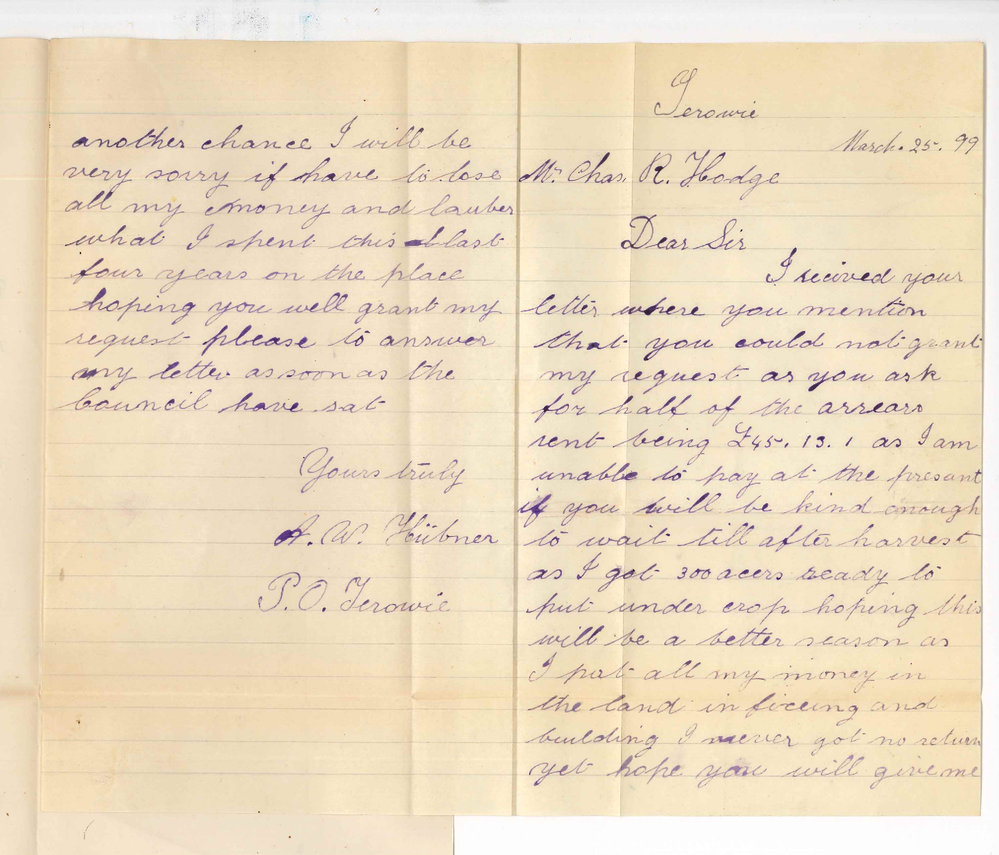 Terowie
March. 25. 99
Mr Chas. R. Hodge
Dear Sir
I recived your
letter where you mention
that you could not grant
my request as you ask
for half of the arrears
rent being £45. 13. 1 as I am
unable to pay at the presant
if you will be kind enough
to wait till after harvest
as I got 300 acers ready to
put under crop hoping this
will be a better season as
I put all my money in
the land in and
building I never got no return
yet hope you will give me
another chance I will be
very sorry if have to lose
all my money and lauber
what I spent this last
four years on the place
hoping you well grant my
request please to answer
my letter as soon as the
Council have sat
Yours truly
A. W. Hübner
P. O. Terowie